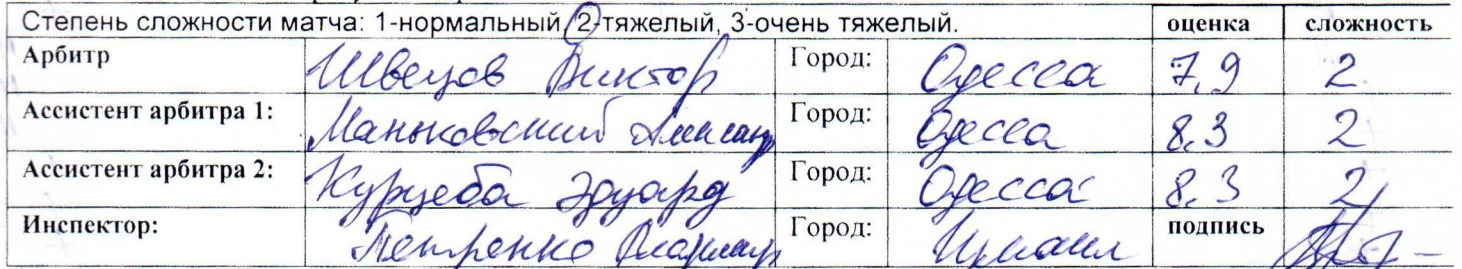 Степень сложности матча: 1-нормальный, 2-тяжелый, 3-очень тяжелый. оценка сложность
Арбитр Швецов Виктор Город: Одесса 7,9 2
Ассистент арбитра 1: Маньковский Город: Одесса 8,3 2
Ассистент арбитра 2: Курцеба Эдуард Город: Одесса 8,3 2
Инспектор: Петренко Город: Измаил подпись